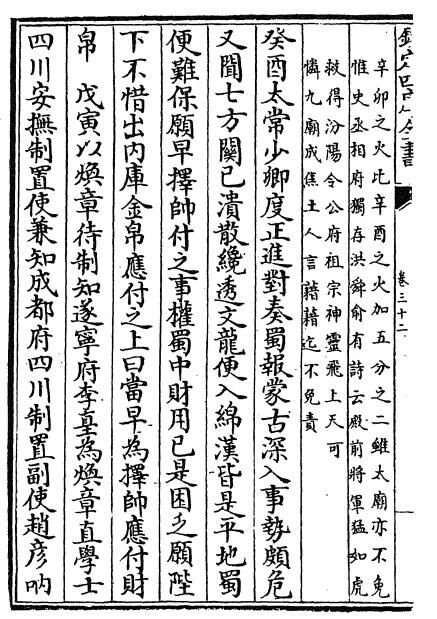 欽定四庫全書
卷三十二
辛卯之火比辛酉之火加五分之二雖太廟亦不免
惟史丞相府獨存洪舜俞有詩云殿前將軍猛如虎
救得汾陽令公府祖宗神靈飛上天可
憐九廟成焦土人言藉藉迄不免責
癸酉太常少卿度正進對奏蜀報蒙古深入事勢頗危
又聞七方關已潰散纔透文龍便入綿漢皆是平地蜀
便難保願早擇帥付之事權蜀中財用已是困乏願陛
下不惜出內庫金帛應付之上曰當早為擇帥應付財
帛 戊寅以煥章待制知遂寧府李𡌴為煥章直學士
四川安撫制置使兼知成都府四川制置副使趙彥吶